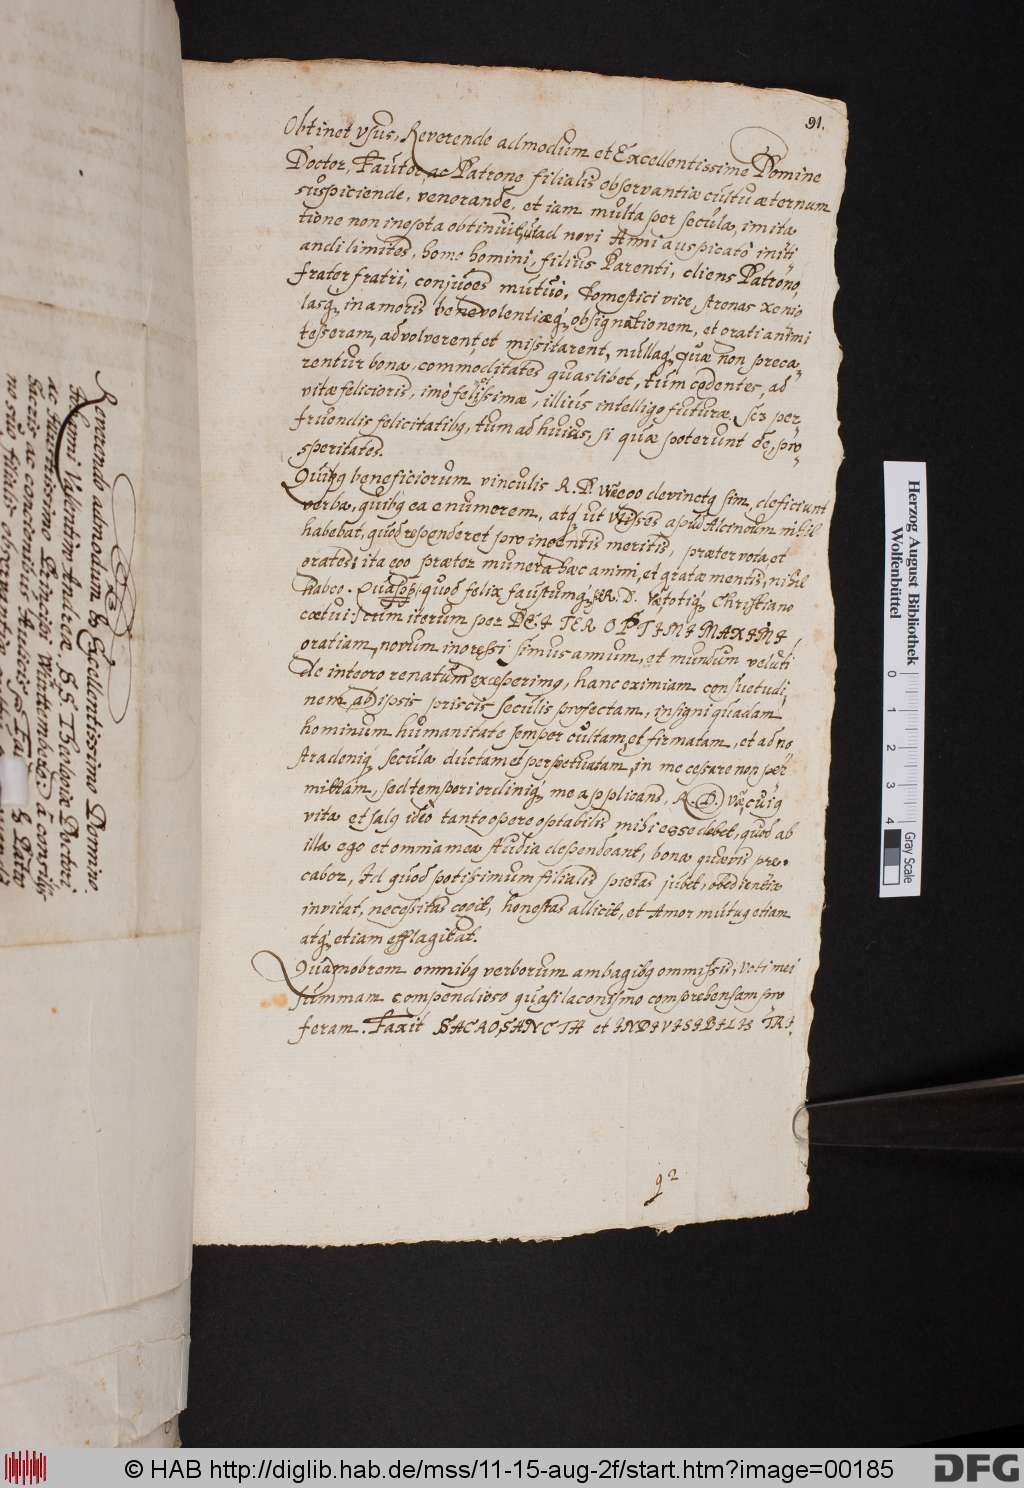 91.
Obtinet vsus, Reverende admodum et Excellentissime Domine
Doctor, Fautor, ac Patrone filialis observantiæ cultu æternum
suspiciende, venerandé, et iam multa per secula, imita
tione non inepta obtinuit, ut ad novi Anni auspicatò initi
andi limites, homo homini, filius Parenti, cliens Patrono,
frater fratri, conjuges mútuò, domestici vice, strenas xenio
lasq́, in amoris benevolentiæq́, obsignationem, et grati animi
tesseram, advolverent, et missitarent, nullaq́, quæ non preca,
rentur bona, commoditates quaslibet, tùm cedentes, ad
vitæ felicioris, imò felicissimæ, illius intelligo futuræ, per,
fruendis felicitatibq, tum ad huius, si quæ poterunt de, pro,
speritates.
Quibq beneficiorum vinculis R. D. devinctq sim, deficiunt
verba, quibq ea enumerem, atq́ ut Vlysses apud Alcinoum nihil
habebat, quod responderet pro ingentis meritis, præter vota et
oratos; ita ego præter munera hæc animi, et gratæ mentis, nihil
habeo. quod felix faustumq́, R. D. totiq́, Christiano
cœtui: cum iterum per DEI TER OPTIMI MAXIMI
gratiam, novum ingressi simus annum, et mundum veluti
de integro renatum exceperimq, hanc eximiam consuetudi,
nem, ab ipsis priscis seculis profectam, insigni quadam
hominum humanitate semper cultam, et firmatam, et ad no
stra deniq́, secula ductam et perpetuatam, in me cessare non per
mittam, sed tempori ordiniq́, me applicans, R. D. cuiq
vita et salq ideò tanto opere optabilis mihi esse debet, quod ab
illa ego et omnia mea studia dependeant, bona quævis pre,
cabor, Id quod potissimum filialis pietas jubet, obedientia
invitat, necessitas cogit, honestas allicit, et Amor mútuq etiam
atq́, etiam efflagitat.
Quamobrem omnibq verborum ambagibq ommissis, voti mei
summam compendioso quasi laconismo comprehensam pro
feram. Faxit SACROSANCTA et INDIVISIBILIS TRI,
92
Reverendo admodum & Excellentissimo Domino
Valentino Andreæ SS. Theologiæ Doctori
ac Illustrissimo Principi Würtemberg: à consilijs
sacris ac concionibus Aulicis
no suo filialis observantiæ
Herzog August Bibliothek
Wolfenbüttel
0 1 2 3 4
Gray Scale
© HAB http://diglib.hab.de/mss/11-15-aug-2f/start.htm?image=00185
DFG